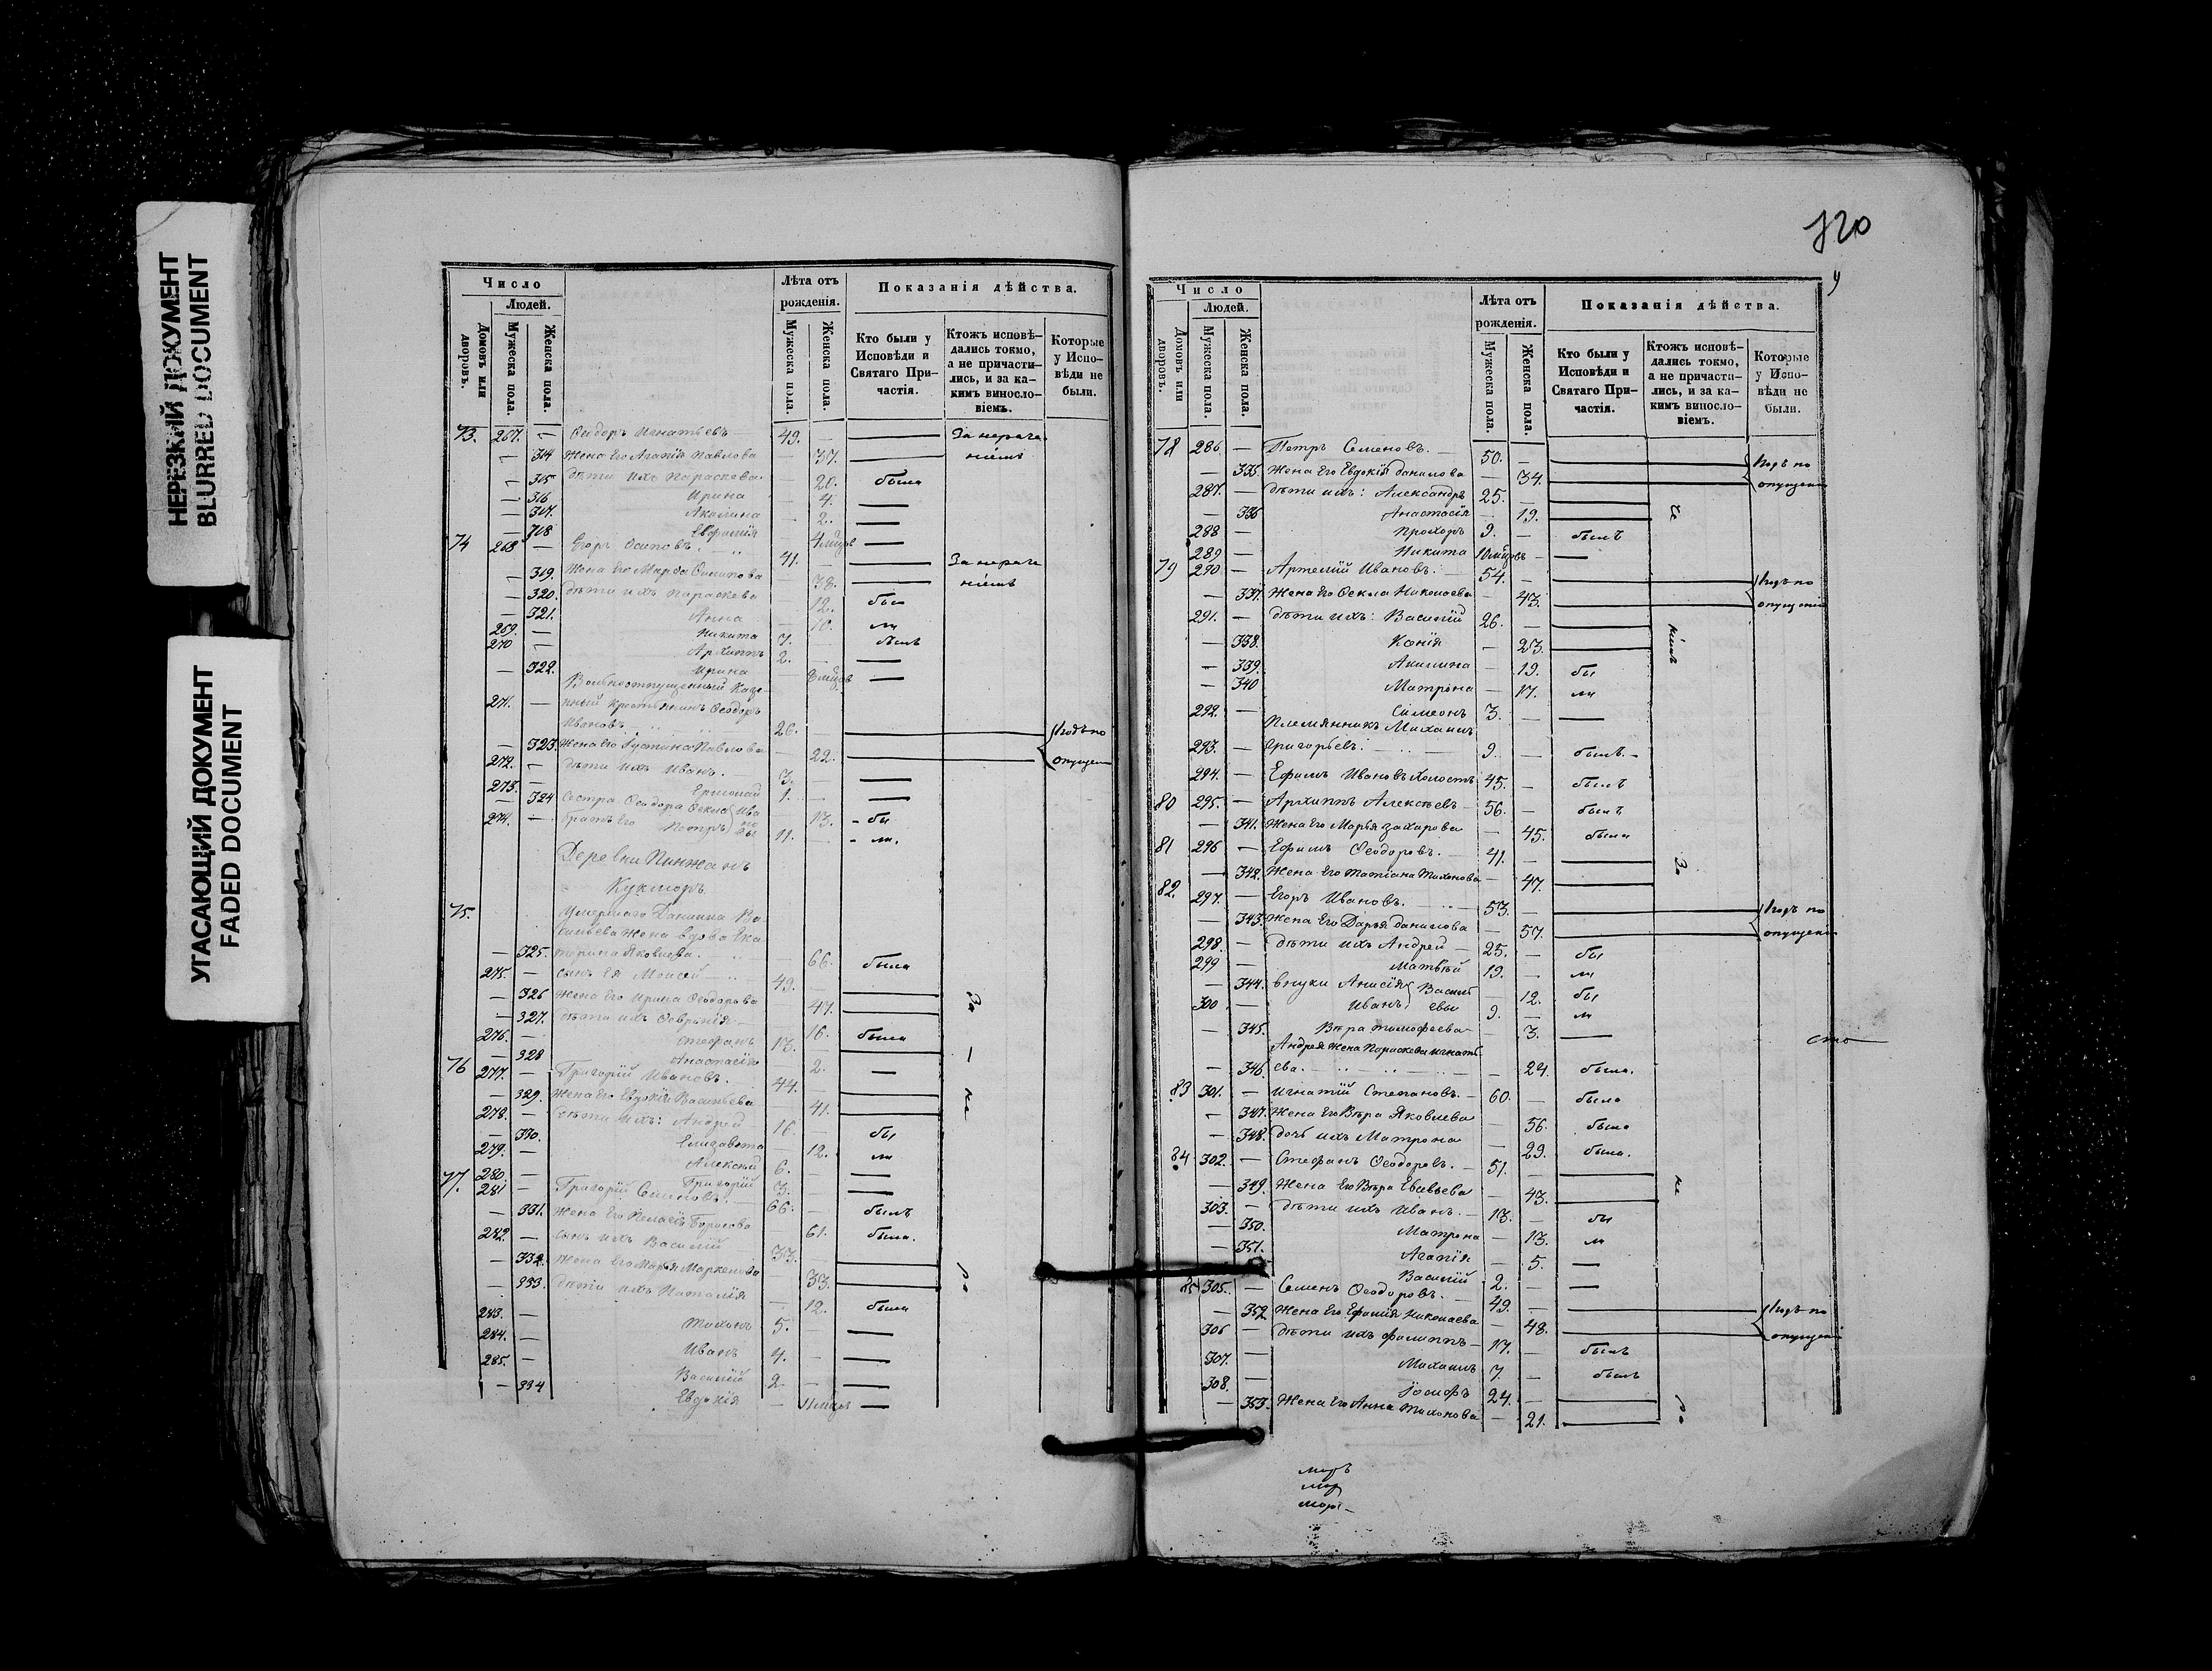 НЕРЕЗКИЙ ДОКУМЕНТ
BLURRED DOCUMENT
УГАСАЮЩИЙ ДОКУМЕНТ
FADED DOCUMENT
Число
Людей.
Домовъ или дворовъ.
Мужеска пола.
Женска пола.
Лѣта отъ рожденія.
Мужеска пола.
Женска пола.
Показанія дѣйства.
Кто были у Исповѣди и Святаго Причастія.
Ктожъ исповѣдались токмо, а не причастились, и за какимъ винословіемъ.
Которые у Исповѣди не были.
73. 267. — Ѳеодоръ Игнатьевъ 49. — За нераче
— 314 Жена его Агапія Павлова — 37. ніемъ
— 315 дѣти ихъ Параскева — 20. была
— 316 Ирина 4.
— 317. Акилина — 2.
— 318 Евфимія 4 мѣсцъ
74 268 — Егоръ Осиповъ. 41. За нераче
— 319. Жена его Марѳа 38. ніемъ
— 320. дѣти ихъ Параскева — 12. бы
— 321. Анна — 10. ли
269. — Никита 7. былъ
270 — Архиппъ 2.
— 322. Ирина 3 мѣсцъ
Вольноотпущенный Казе
271. — нный крестьянинъ Ѳеодоръ
Ивановъ 26. — Подъ по
— 323. Жена его Іустина Павлова — 22. опущен
272. — дѣти ихъ Иванъ. 3.
273. — Ермолай 1.
— 324 Сестра Ѳеодора Ѳекла Ива — 13. бы
274. — братъ его Петръ 11. ли.
Деревни Пинжанъ
Кукморъ
75. Умершаго Даніила Ва
сильева жена вдова Ека
— 325. терина Яковлева. — 66. была
275. — сынъ ея Моисей 49. —
— 326 Жена его Ирина Ѳеодорова — 47. За
— 327. дѣти ихъ Ѳевронія — 16. была
276. — Стефанъ 13. —
— 328 Анастасія — 2.
76 277. — Григорій Ивановъ. 44. —
— 329. Жена его Евдокія Васильева — 41. не
278. — дѣти ихъ: Андрей 16. — бы
— 330. Елизавета — 12. ли
279. — Алексѣй 6.
280. — Григорій 3.
77. 281 — Григорій Семеновъ. 66. — былъ
— 331. Жена его Пелагія Борисова 61. была.
282. — сынъ ихъ Василій 33.
— 332. Жена его Марья — 33. ра
— 333. дѣти ихъ Наталія — 12. была
283. — Тихонъ 5. —
284. — Иванъ 4. —
285. — Василій 2. —
— 334 Евдокія — 11 мѣсцъ
120
Число
Людей.
Домовъ или дворовъ.
Мужеска пола.
Женска пола.
Лѣта отъ рожденія.
Мужеска пола.
Женска пола.
Показанія дѣйства.
Кто были у Исповѣди и Святаго Причастія.
Ктожъ исповѣдались токмо, а не причастились, и за какимъ винословіемъ.
Которые у Исповѣди не были.
78 286 — Петръ Семеновъ. — 50. — Подъ по
— 335. Жена его Евдокія Данилова — 34. опущен
287. — дѣти ихъ: Александръ 25. —
— 336 Анастасія — 19. че
288 — Прохоръ 9. — былъ
289 — Никита 10 мѣсцъ —
79 290 — Артемій Ивановъ. 54. — Подъ по
— 337. Жена его Ѳекла Николаева — 43. опущен
291. — дѣти ихъ: Василій 26. —
— 338. Ксенія — 23. ніемъ
— 339. Акилина — 19. бы
— 340 Матрона — 17. ли
292. — Симеонъ 3. —
Племянникъ Михаилъ
293. — Григорьевъ. 9. — былъ.
294. — Ефимъ Ивановъ холостъ 45. — былъ
80 295. — Архиппъ Алексѣевъ — 56. — былъ
— 341. Жена его Марья Захарова — 45. была
81 296 — Ефимъ Ѳеодоровъ. — 41. — За
— 342. Жена его Татіана Тихонова — 47.
82. 297. — Егоръ Ивановъ. 53. — Подъ по
— 343. Жена его Дарья Данилова — 57. опущен
298. — дѣти ихъ Андрей 25. — бы
299 — Матвѣй 19. — ли
— 344. внуки Анисія Васил — 12. бы
300 — Иванъ евы 9. — ли
— 345. Вѣра Тимоѳеева — 3.
Андрея жена Параскева Игнать
— 346. ева. — 24. была.
83 301. — Игнатій Степановъ. — 60. — была
— 347. Жена его Вѣра Яковлева — 56. была
— 348. дочь ихъ Матрона — 29. была.
84 302. — Стефанъ Ѳеодоровъ. — 51. —
— 349. Жена его Вѣра — 43. не
303. — дѣти ихъ Иванъ. 13. — бы
— 350. Матрона — 13. ли
— 351. Агапія — 5.
Василій 2. —
85 305. — Семенъ Ѳеодоровъ. 49. — Подъ по
— 352. Жена его Ефимія Николаева — 48. опущен
306 — дѣти ихъ Филиппъ 17. — былъ
307. — Михаилъ 7. — былъ
308. — Іосифъ 24. — ра
— 353. Жена его Анна Тихонова — 21.